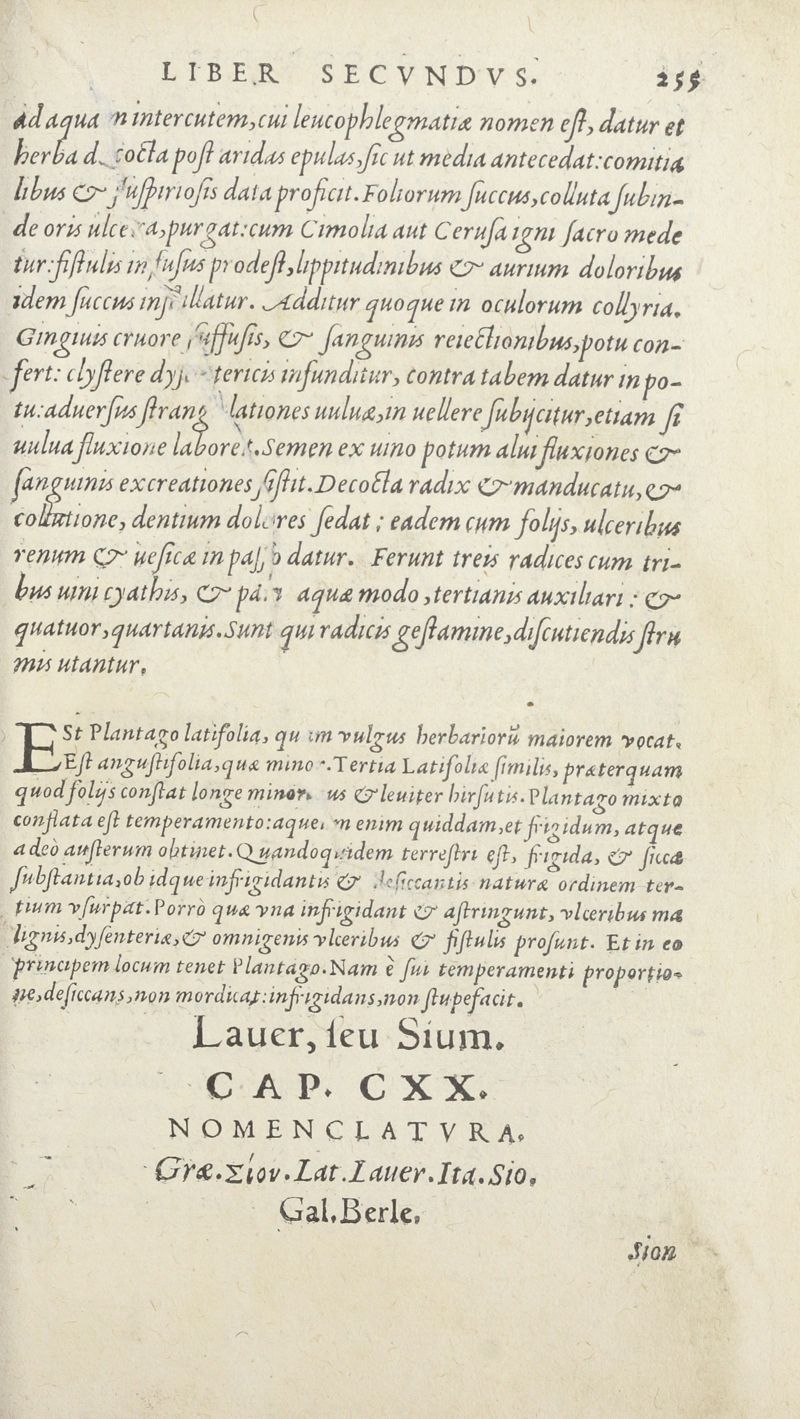 LIBER SECVNDVS. 255
Ad aqua intercutem, cui leucophlegmatiæ nomen eſt, datur et
herba d cocta poſt aridas epulas, ſic ut media antecedat: comitia
libus & ſuſpirioſis data proficit. Foliorum ſuccus, colluta ſubin-
de oris ulcera, purgat: cum Cimolia aut Ceruſa igni ſacro mede
tur: fiſtulis infuſus prodeſt, lippitudinibus & aurium doloribus
idem ſuccus inſtillatur. Additur quoque in oculorum collyria.
Gingiuis cruore ſuffuſis, & ſanguinis reiectionibus, potu con-
fert: clyſtere dyſentericis infunditur, contra tabem datur in po-
tu: aduerſus ſtrangulationes uuluæ, in uellere ſubijcitur, etiam ſi
uulua fluxione laboret. Semen ex uino potum alui fluxiones &
ſanguinis excreationes ſiſtit. Decocta radix & manducatu, &
collutione, dentium dolores ſedat; eadem cum folijs, ulceribus
renum & ueſicæ in paſſo datur. Ferunt treis radices cum tri-
bus uini cyathis, & pari aquæ modo, tertianis auxiliari: &
quatuor, quartanis. Sunt qui radicis geſtamine, diſcutiendis ſtru
mis utantur.
ESt Plantago latifolia, quam vulgus herbariorũ maiorem vocat.
Eſt anguſtifolia, quæ minor. Tertia Latifoliæ ſimilis, præterquam
quod folijs conſtat longe minoribus & leuiter hirſutis. Plantago mixto
conflata eſt temperamento: aqueum enim quiddam, et frigidum, atque
adeò auſterum obtinet. Quandoquidem terreſtri eſt, frigida, & ſicca
ſubſtantia, ob idque infrigidantis & deſiccantis naturæ ordinem ter-
tium vſurpat. Porrò quæ vna infrigidant & aſtringunt, vlceribus ma
lignis, dyſenteriæ, & omnigenis vlceribus & fiſtulis proſunt. Et in eo
principem locum tenet Plantago. Nam è ſui temperamenti proportio-
ne, deſiccans, non mordicat: infrigidans, non ſtupefacit.
Lauer, ſeu Sium.
CAP. CXX.
NOMENCLATVRA.
Græ. Σίον. Lat. Lauer. Ita. Sio.
Gal. Berle.
Sion